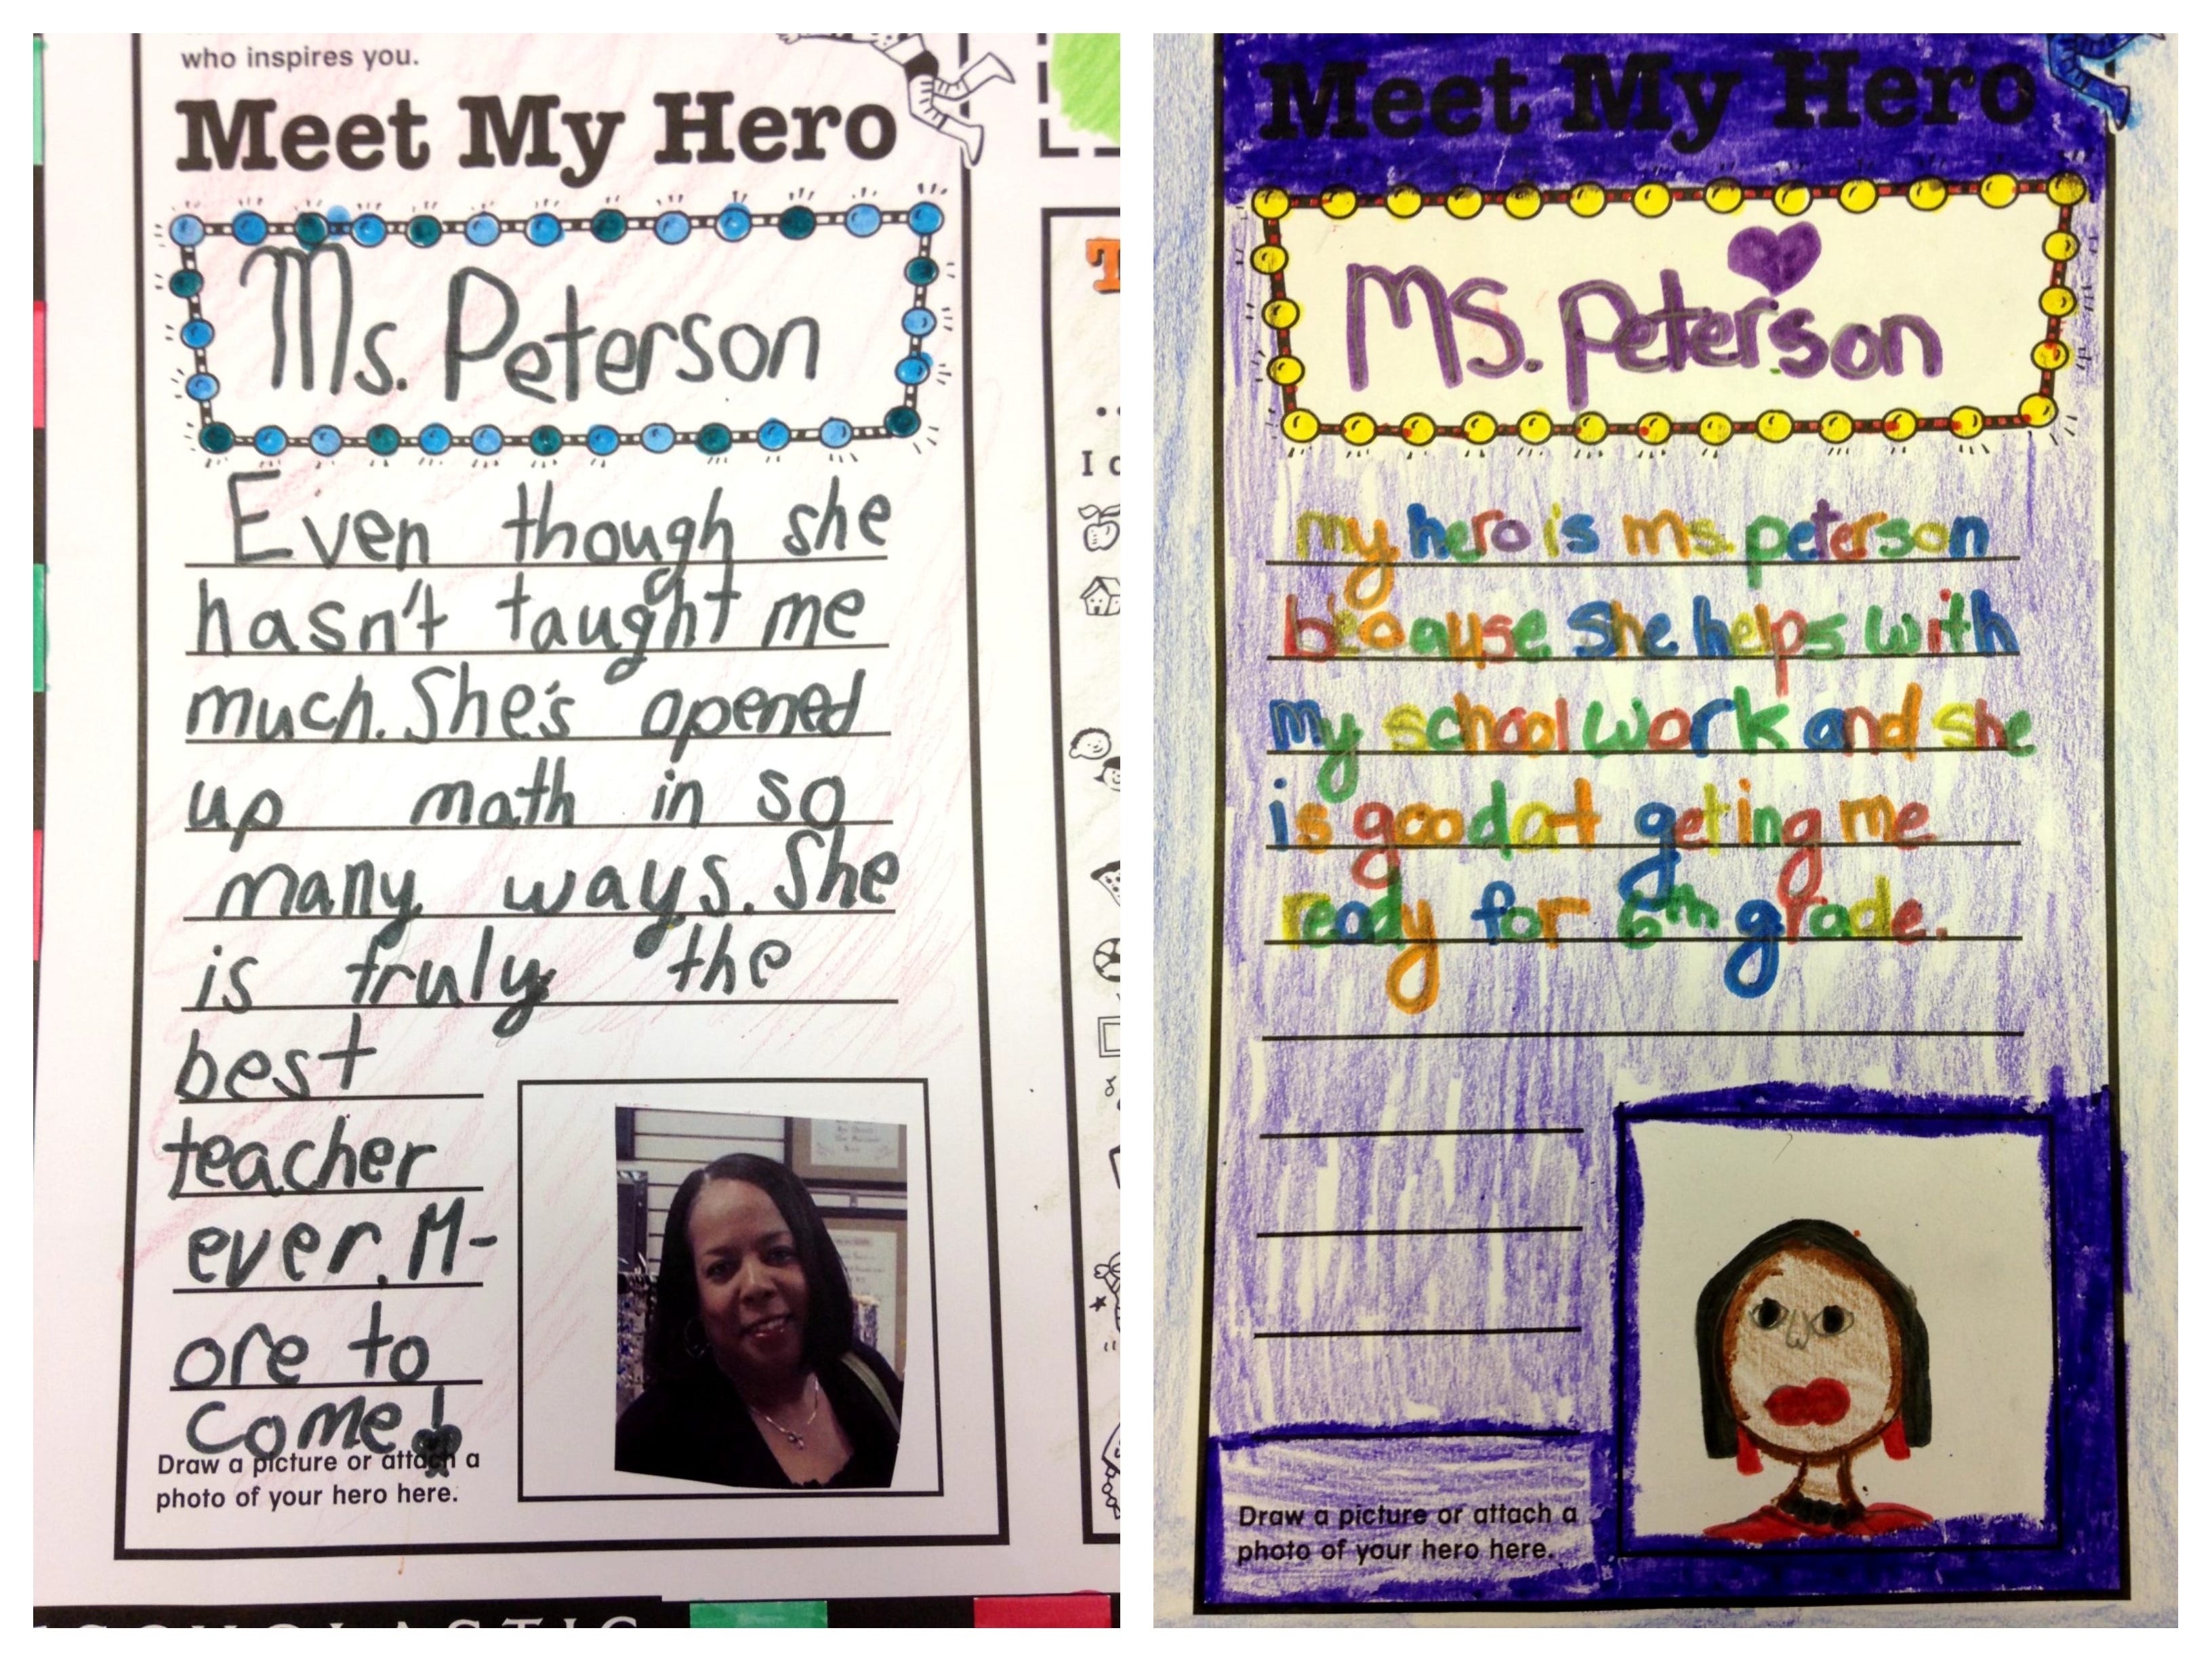 who inspires you.
Meet My Hero
Ms. Peterson
Even though she
hasn't taught me
much. She's opened
up math in so
many ways. She
is truly the
best
teacher
ever. M-
ore to
come!
Draw a picture or attach a
photo of your hero here.
SCHOLASTIC
T
I
Meet My Hero
Ms. Peterson
my hero is ms. peterson
because she helps with
my school work and she
is good at geting me
ready for 6th grade.
Draw a picture or attach a
photo of your hero here.